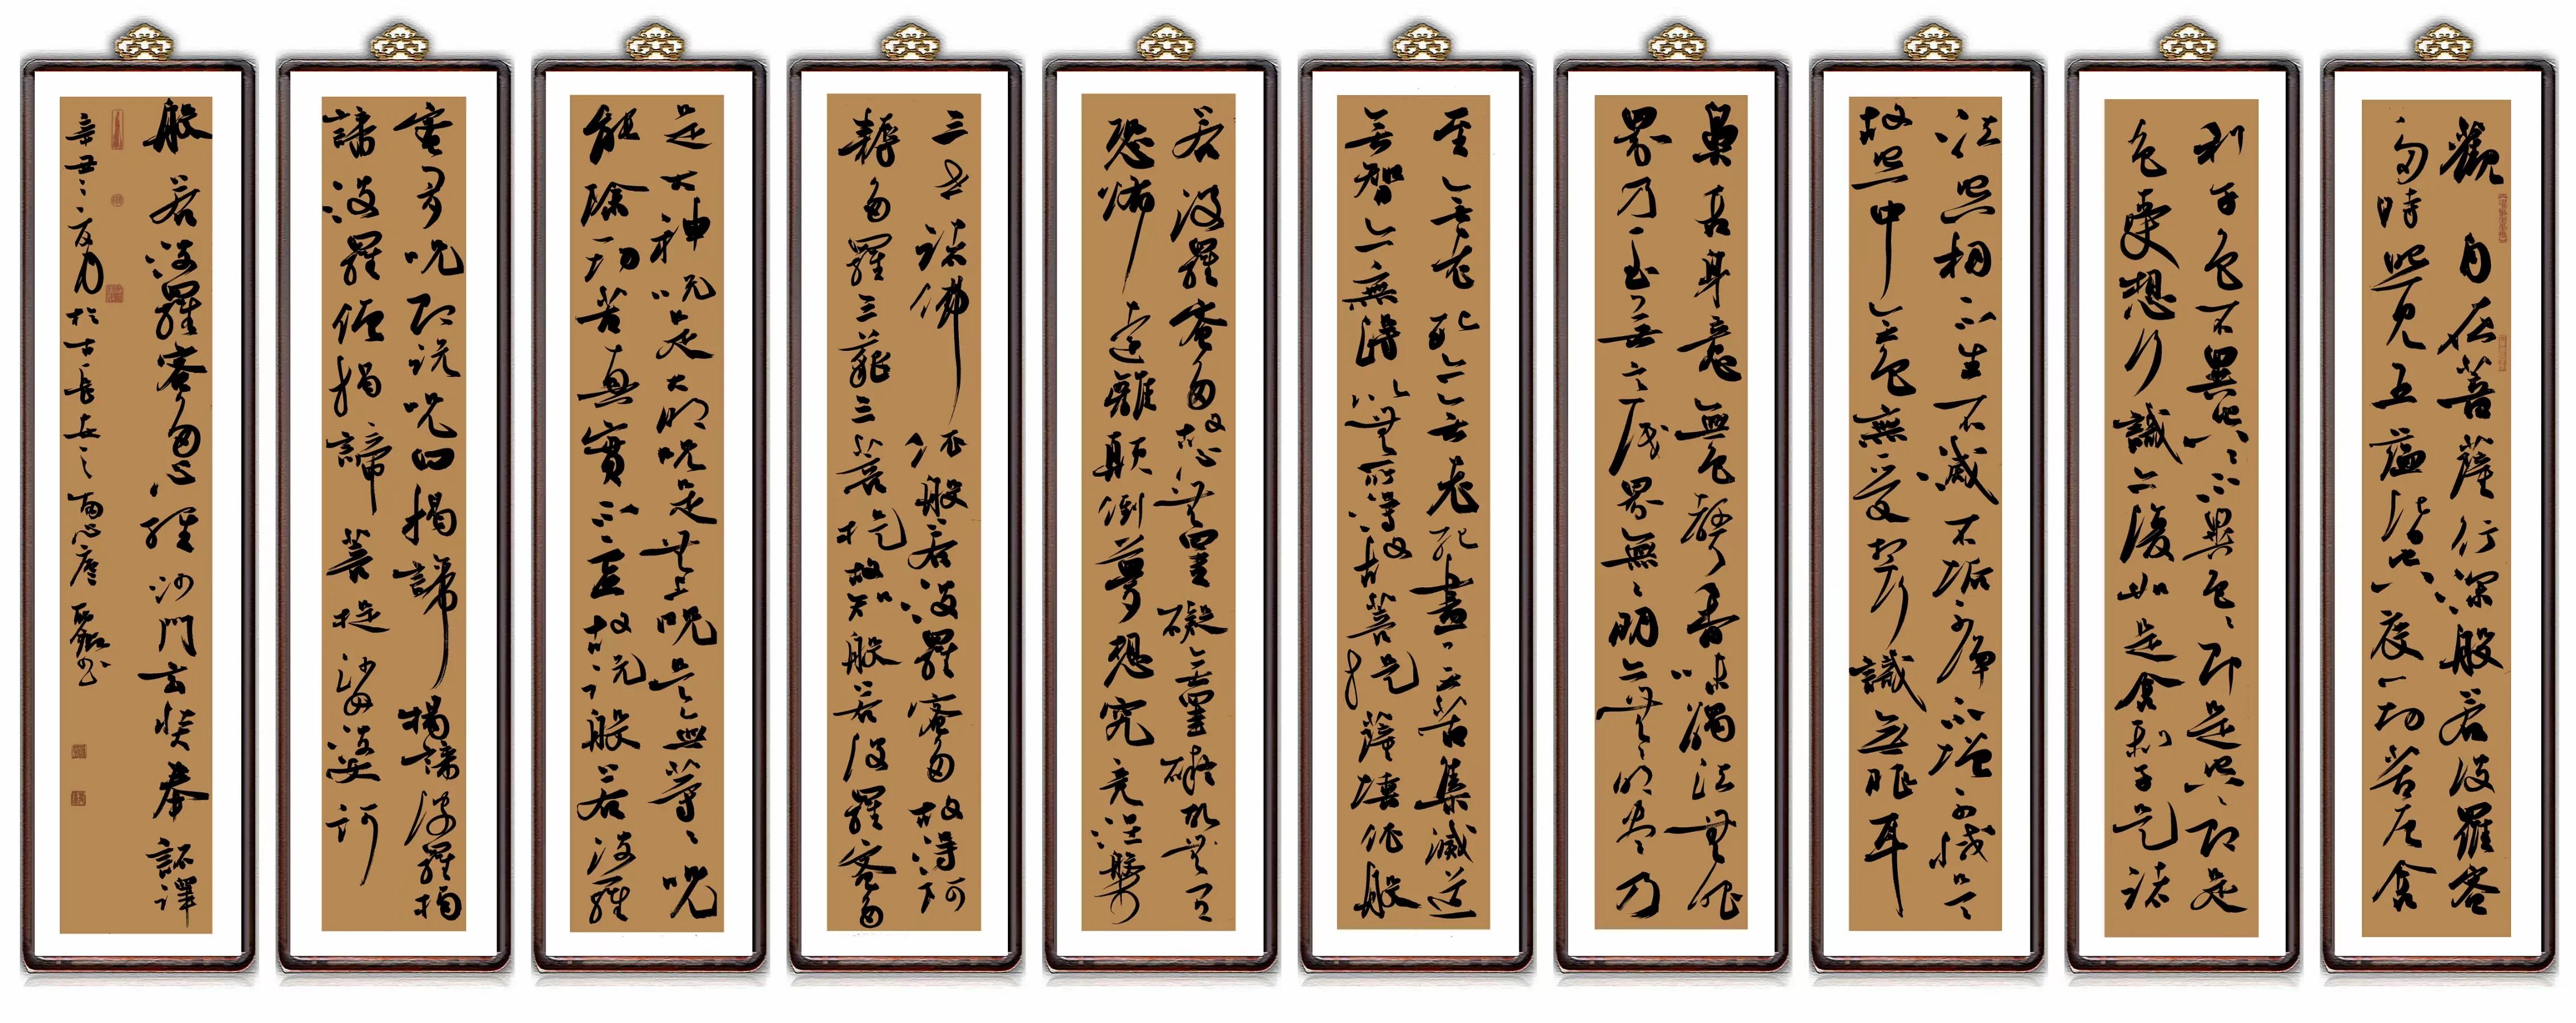 觀自在菩薩行深般若波羅蜜
多時照見五蘊皆空度一切苦厄舍
利子色不異空〻不異色〻即是空〻即是
色受想行識亦復如是舍利子是諸
法空相不生不滅不垢不淨不增不減是
故空中無色無受想行識無眼耳
鼻舌身意無色聲香味觸法無眼
界乃至無意識界無〻明亦無〻明盡乃
至無老死亦無老死盡無苦集滅道
無智亦無得以無所得故菩提薩埵依般
若波羅蜜多故心無罣礙無罣礙故無有
恐怖遠離顛倒夢想究竟涅槃
三世諸佛依般若波羅蜜多故得阿
耨多羅三藐三菩提故知般若波羅蜜多
是大神咒是大明咒是無上咒是無等〻咒
能除一切苦真實不虛故說般若波羅
蜜多咒即說咒曰揭諦揭諦波羅揭
諦波羅僧揭諦菩提娑婆訶
般若波羅蜜多心經沙門玄奘奉詔譯
辛丑之夏月於古長安之南心廬